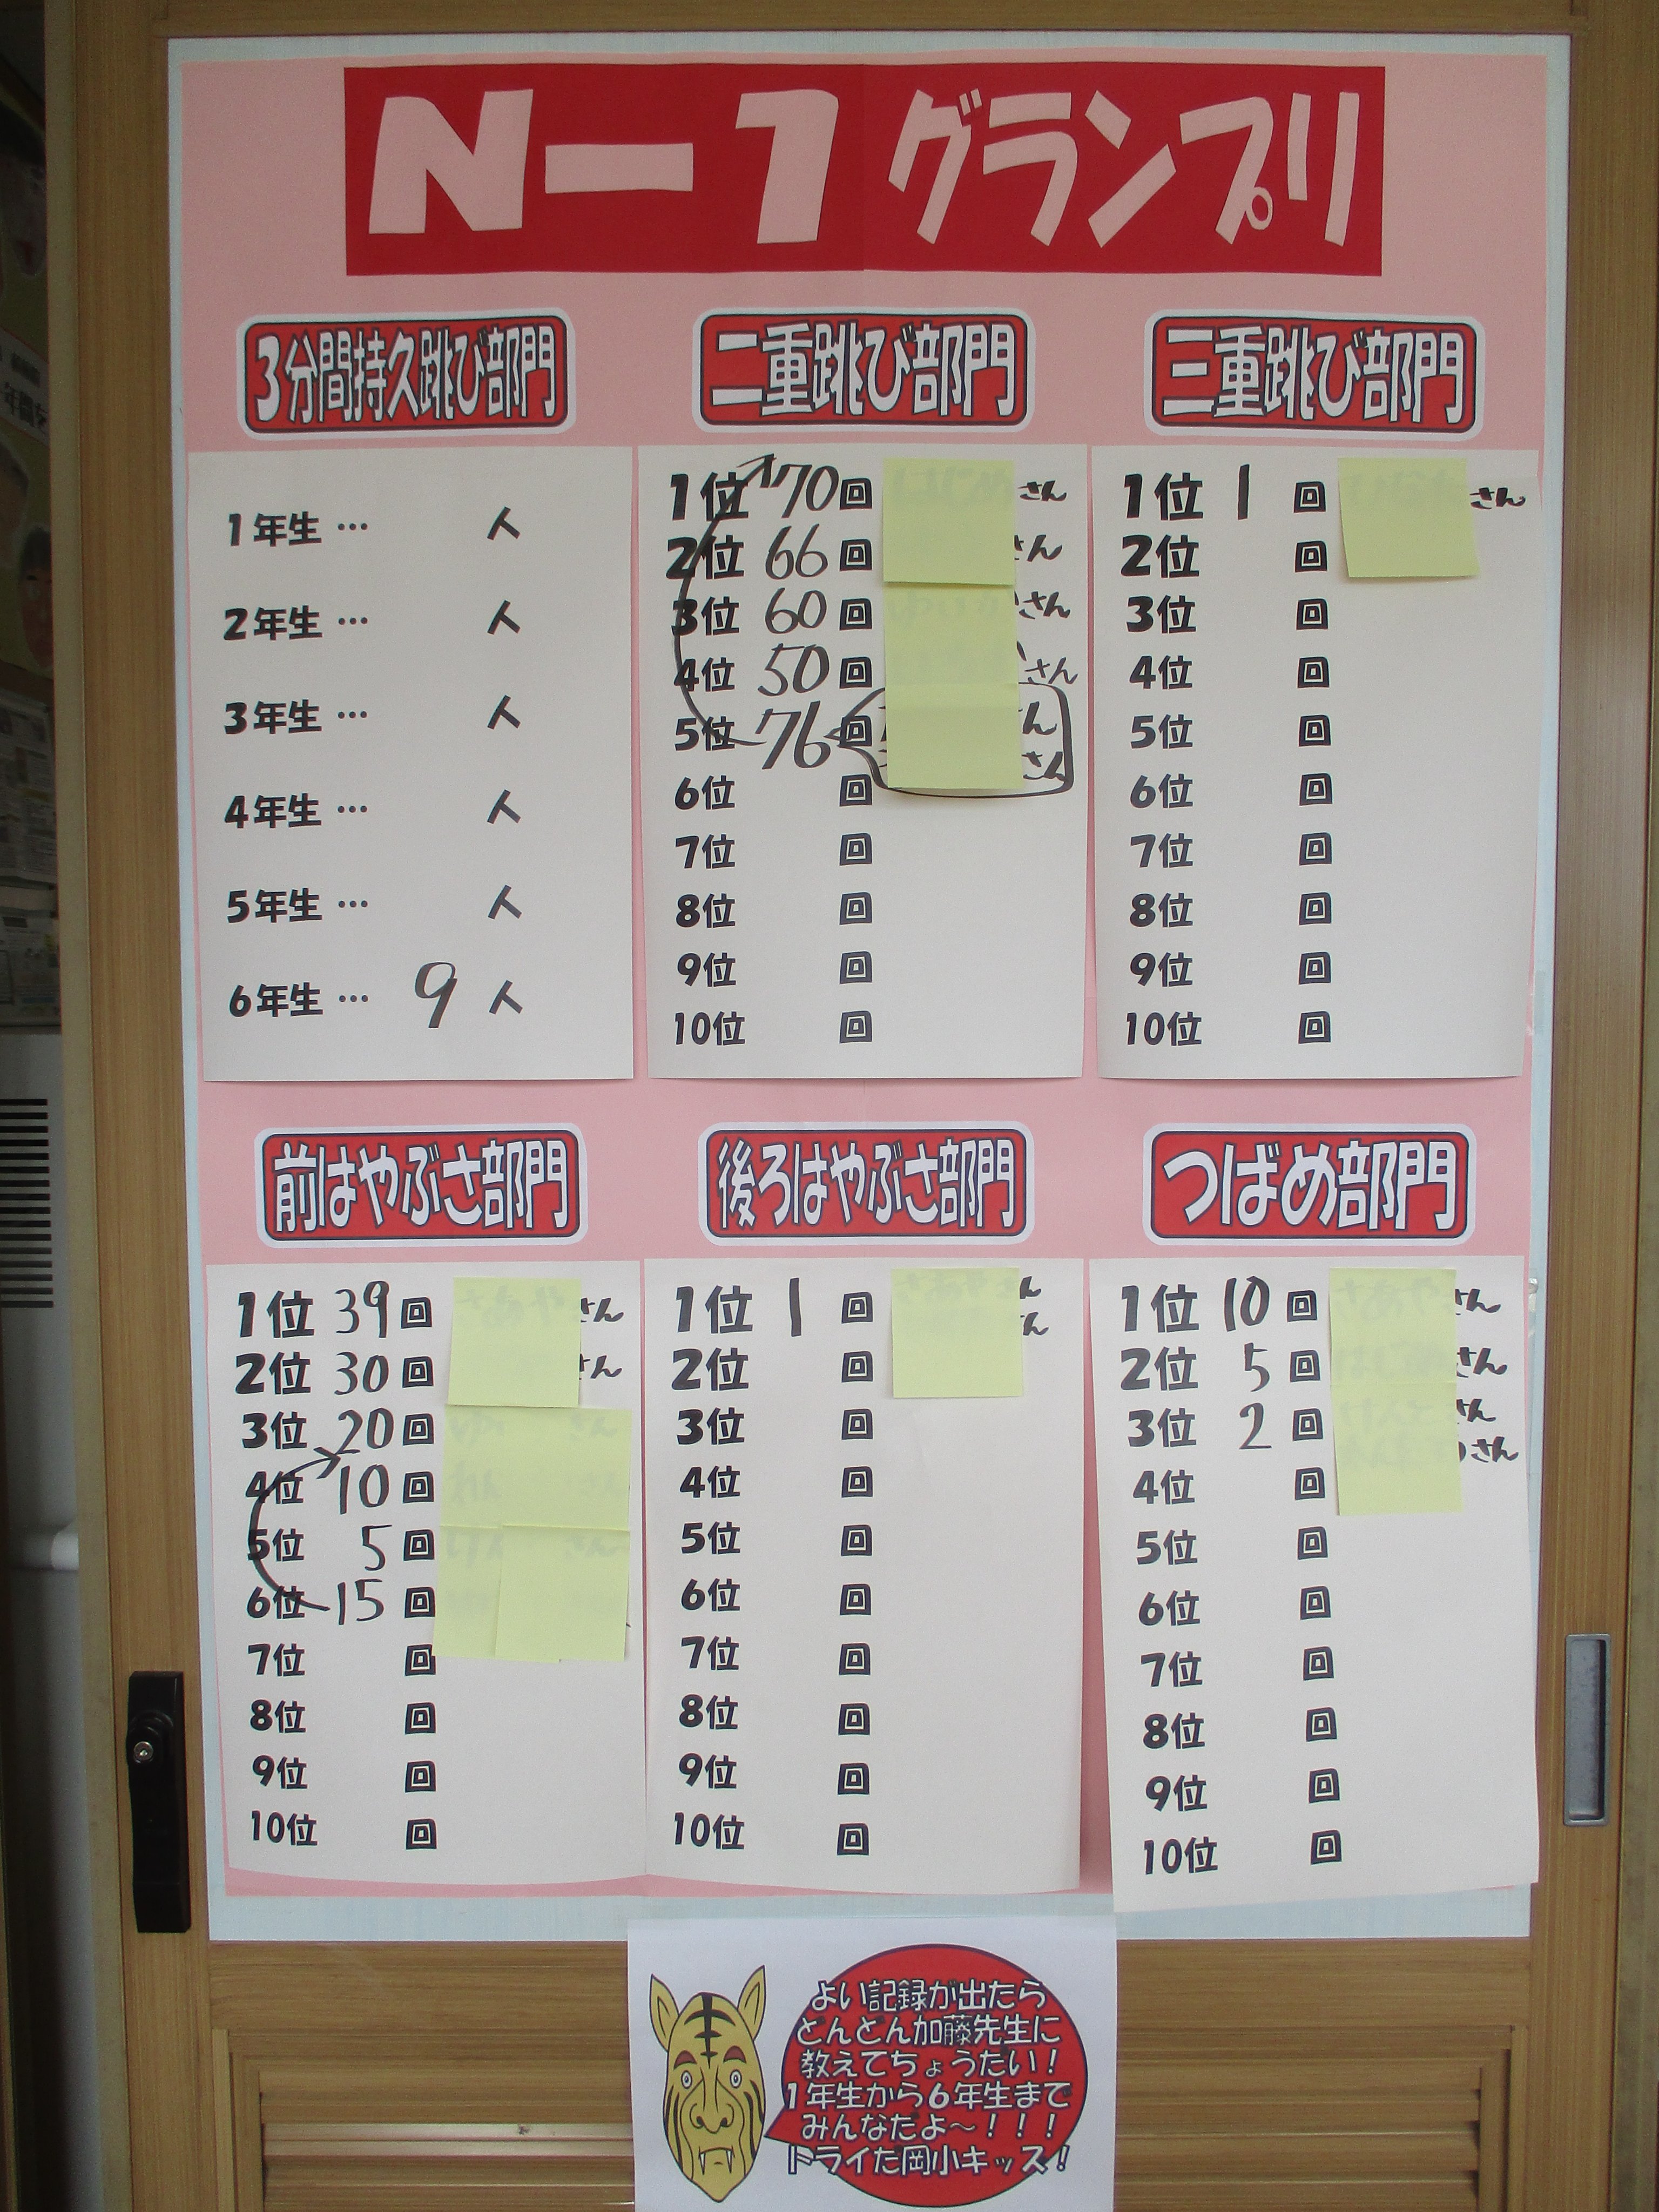 N-1グランプリ
3分間持久跳び部門
1年生… 人
2年生… 人
3年生… 人
4年生… 人
5年生… 人
6年生… 9人
二重跳び部門
1位 70回 さん
2位 66回 さん
3位 60回 さん
4位 50回 さん
5位 76回 ん
さん
6位 回
7位 回
8位 回
9位 回
10位 回
三重跳び部門
1位 1回 さん
2位 回
3位 回
4位 回
5位 回
6位 回
7位 回
8位 回
9位 回
10位 回
前はやぶさ部門
1位 39回 さん
2位 30回 さん
3位 20回
4位 10回
5位 5回
6位 15回
7位 回
8位 回
9位 回
10位 回
後ろはやぶさ部門
1位 1回 ん
ん
2位 回
3位 回
4位 回
5位 回
6位 回
7位 回
8位 回
9位 回
10位 回
つばめ部門
1位 10回 さん
2位 5回 さん
3位 2回 さん
さん
4位 回
5位 回
6位 回
7位 回
8位 回
9位 回
10位 回
よい記録が出たら
どんどん加藤先生に
教えてちょうだい！
1年生から6年生まで
みんなだよ～！！！
トライだ岡小キッズ！